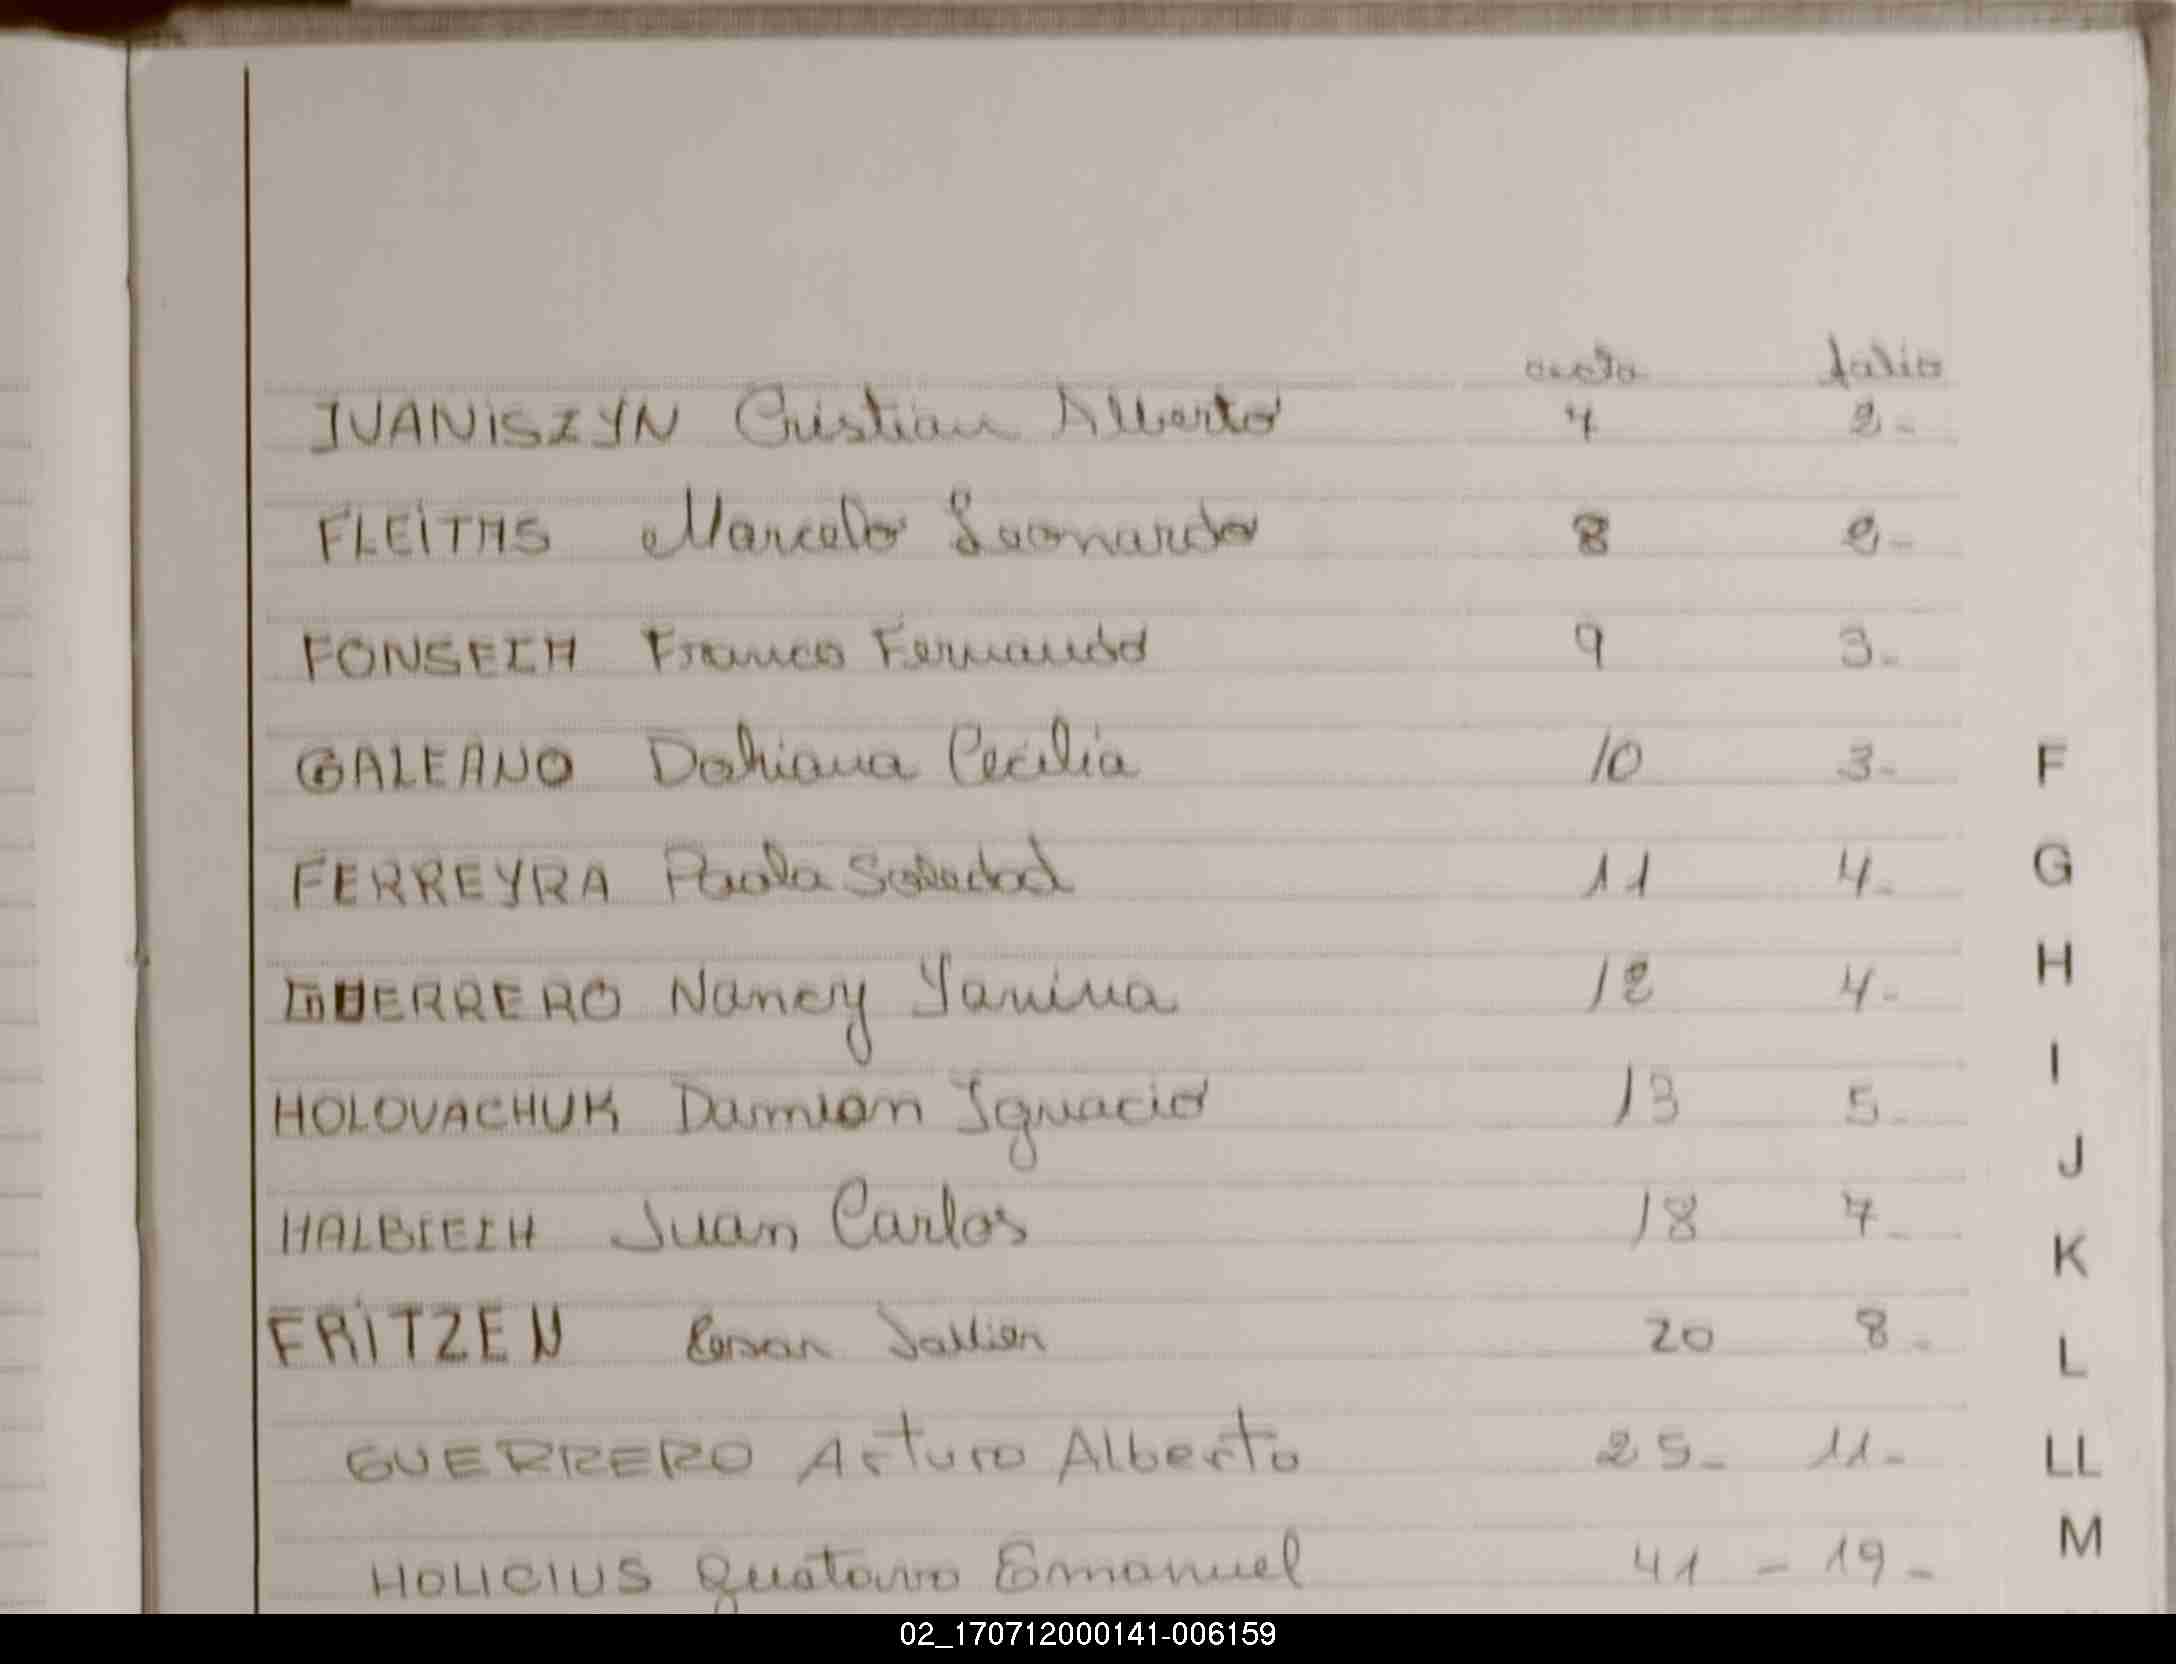 acta folio
IVANISZYN Cristian Alberto 7 2-
FLEITAS Marcelo Leonardo 8 2-
FONSECA Franco Fernando 9 3-
GALEANO Dahiana Cecilia 10 3-
FERREYRA Paola Soledad 11 4-
GUERRERO Nancy Yanina 12 4-
HOLOVACHUK Damian Ignacio 13 5-
Juan Carlos 18 7-
FRITZEN Cesar Javier 20 8-
GUERRERO Arturo Alberto 25- 11-
HOLICIUS Gustavo Emanuel 41 - 19-
F
G
H
I
J
K
L
LL
M
02_170712000141-006159